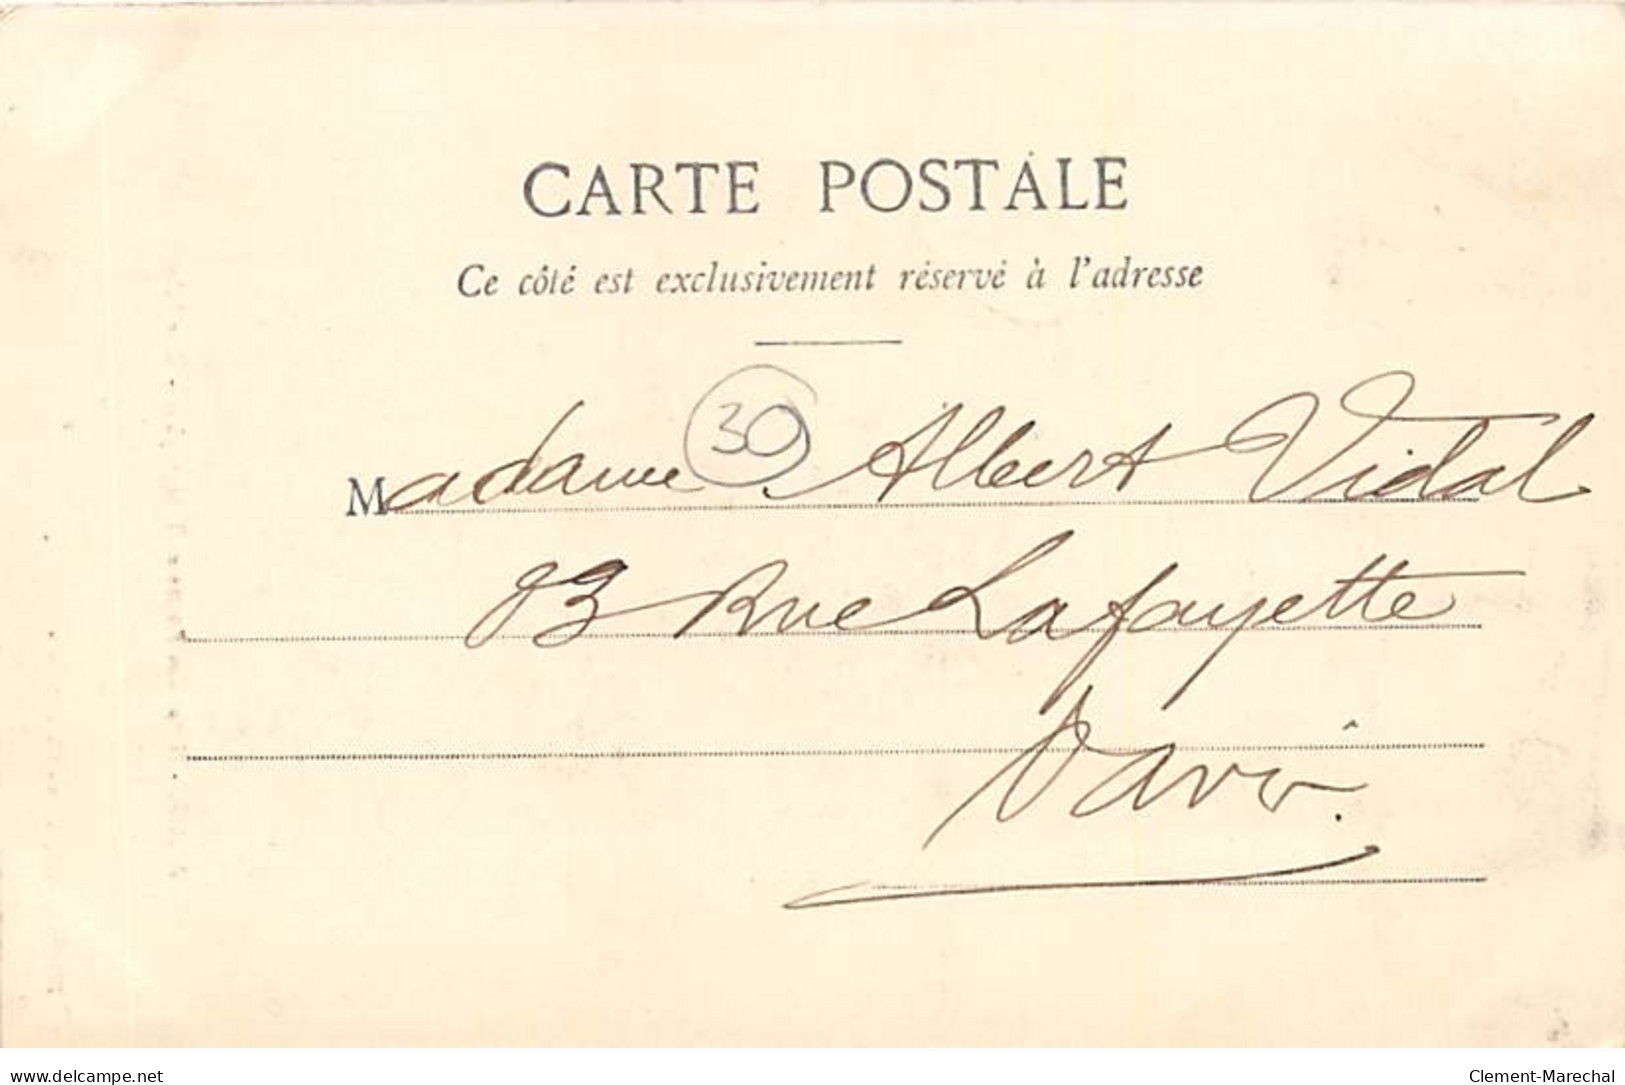 CARTE POSTALE
Ce côté est exclusivement réservé à l'adresse
30
Madame Albert Vidal
83 Rue Lafayette
Paris.
www.delcampe.net
Clement-Marechal